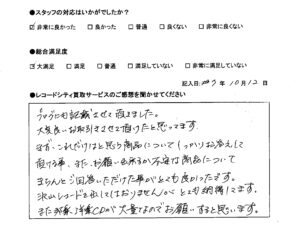 ●スタッフの対応はいかがでしたか?
☑非常に良かった □良かった □普通 □良くない □非常に良くない
●総合満足度
☑大満足 □満足 □普通 □満足していない □非常に満足していない
記入日: 10月12日
●レコードシティ買取サービスのご感想を聞かせてください
ブログにも記載させて頂きました。
大変良いお取引きさせて頂けたと思ってます。
まず、これだけはと思う商品について しっかりお答えして
頂ける事、また、お願い出来るか不安な商品について
きちんとご回答いただけた事がとても良かったです。
沢山レコードを出してはおりませんが とても納得してます。
また邦楽、洋楽CDが大量なのでお願いすると思います。